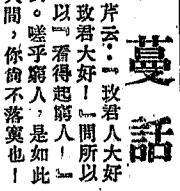 蔓話
芹云：『玫君人大好
玫君大好！』間所以
以『看得起窮人！』
。嗟乎窮人，是如此
人間，你尙不落寞也！